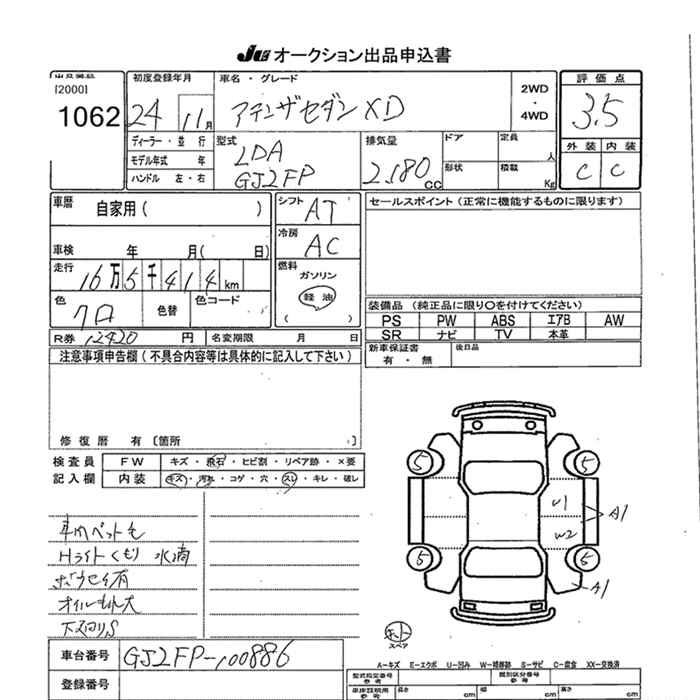 JU オークション出品申込書
出品番号
[2000]
1062
初度登録年月
24 11月
車名・グレード
アテンザセダン XD
2WD
・
4WD
評価点
3.5
ディーラー・並行
モデル年式 年
ハンドル 左・右
型式
LDA
GJ2FP
排気量
2,180 cc
ドア
形状
定員
人
積載
Kg
外装 内装
C C
車歴
自家用( )
シフト AT
冷房 AC
セールスポイント(正常に機能するものに限ります)
車検 年 月( 日)
走行 16万5千414km
燃料
ガソリン
軽油
( )
色 クロ
色替
色コード
装備品(純正品に限り○を付けてください)
PS PW ABS エアB AW
SR ナビ TV 本革
R券 12420 円
名変期限 月 日
新車保証書
有・無
後日品
注意事項申告欄(不具合内容等は具体的に記入して下さい)
修復歴 有〔箇所 〕
検査員 FW キズ・飛石・ヒビ割・リペア跡・×要
記入欄 内装 キズ・汚れ・コゲ・穴・スレ・キレ・破レ
車内ペット毛
Hライトくもり 水滴
オイルもれ大
下廻りS
5 5
U1
A1
W2
5 5
A1
スペア
A-キズ E-エクボ U-凹み W-補修跡 S-サビ C-腐食 XX-交換済
車台番号 GJ2FP-100886
登録番号
型式指定番号
参考
類別区分番号
参考
車庫証明用
参考
長さ cm
幅 cm
高さ cm